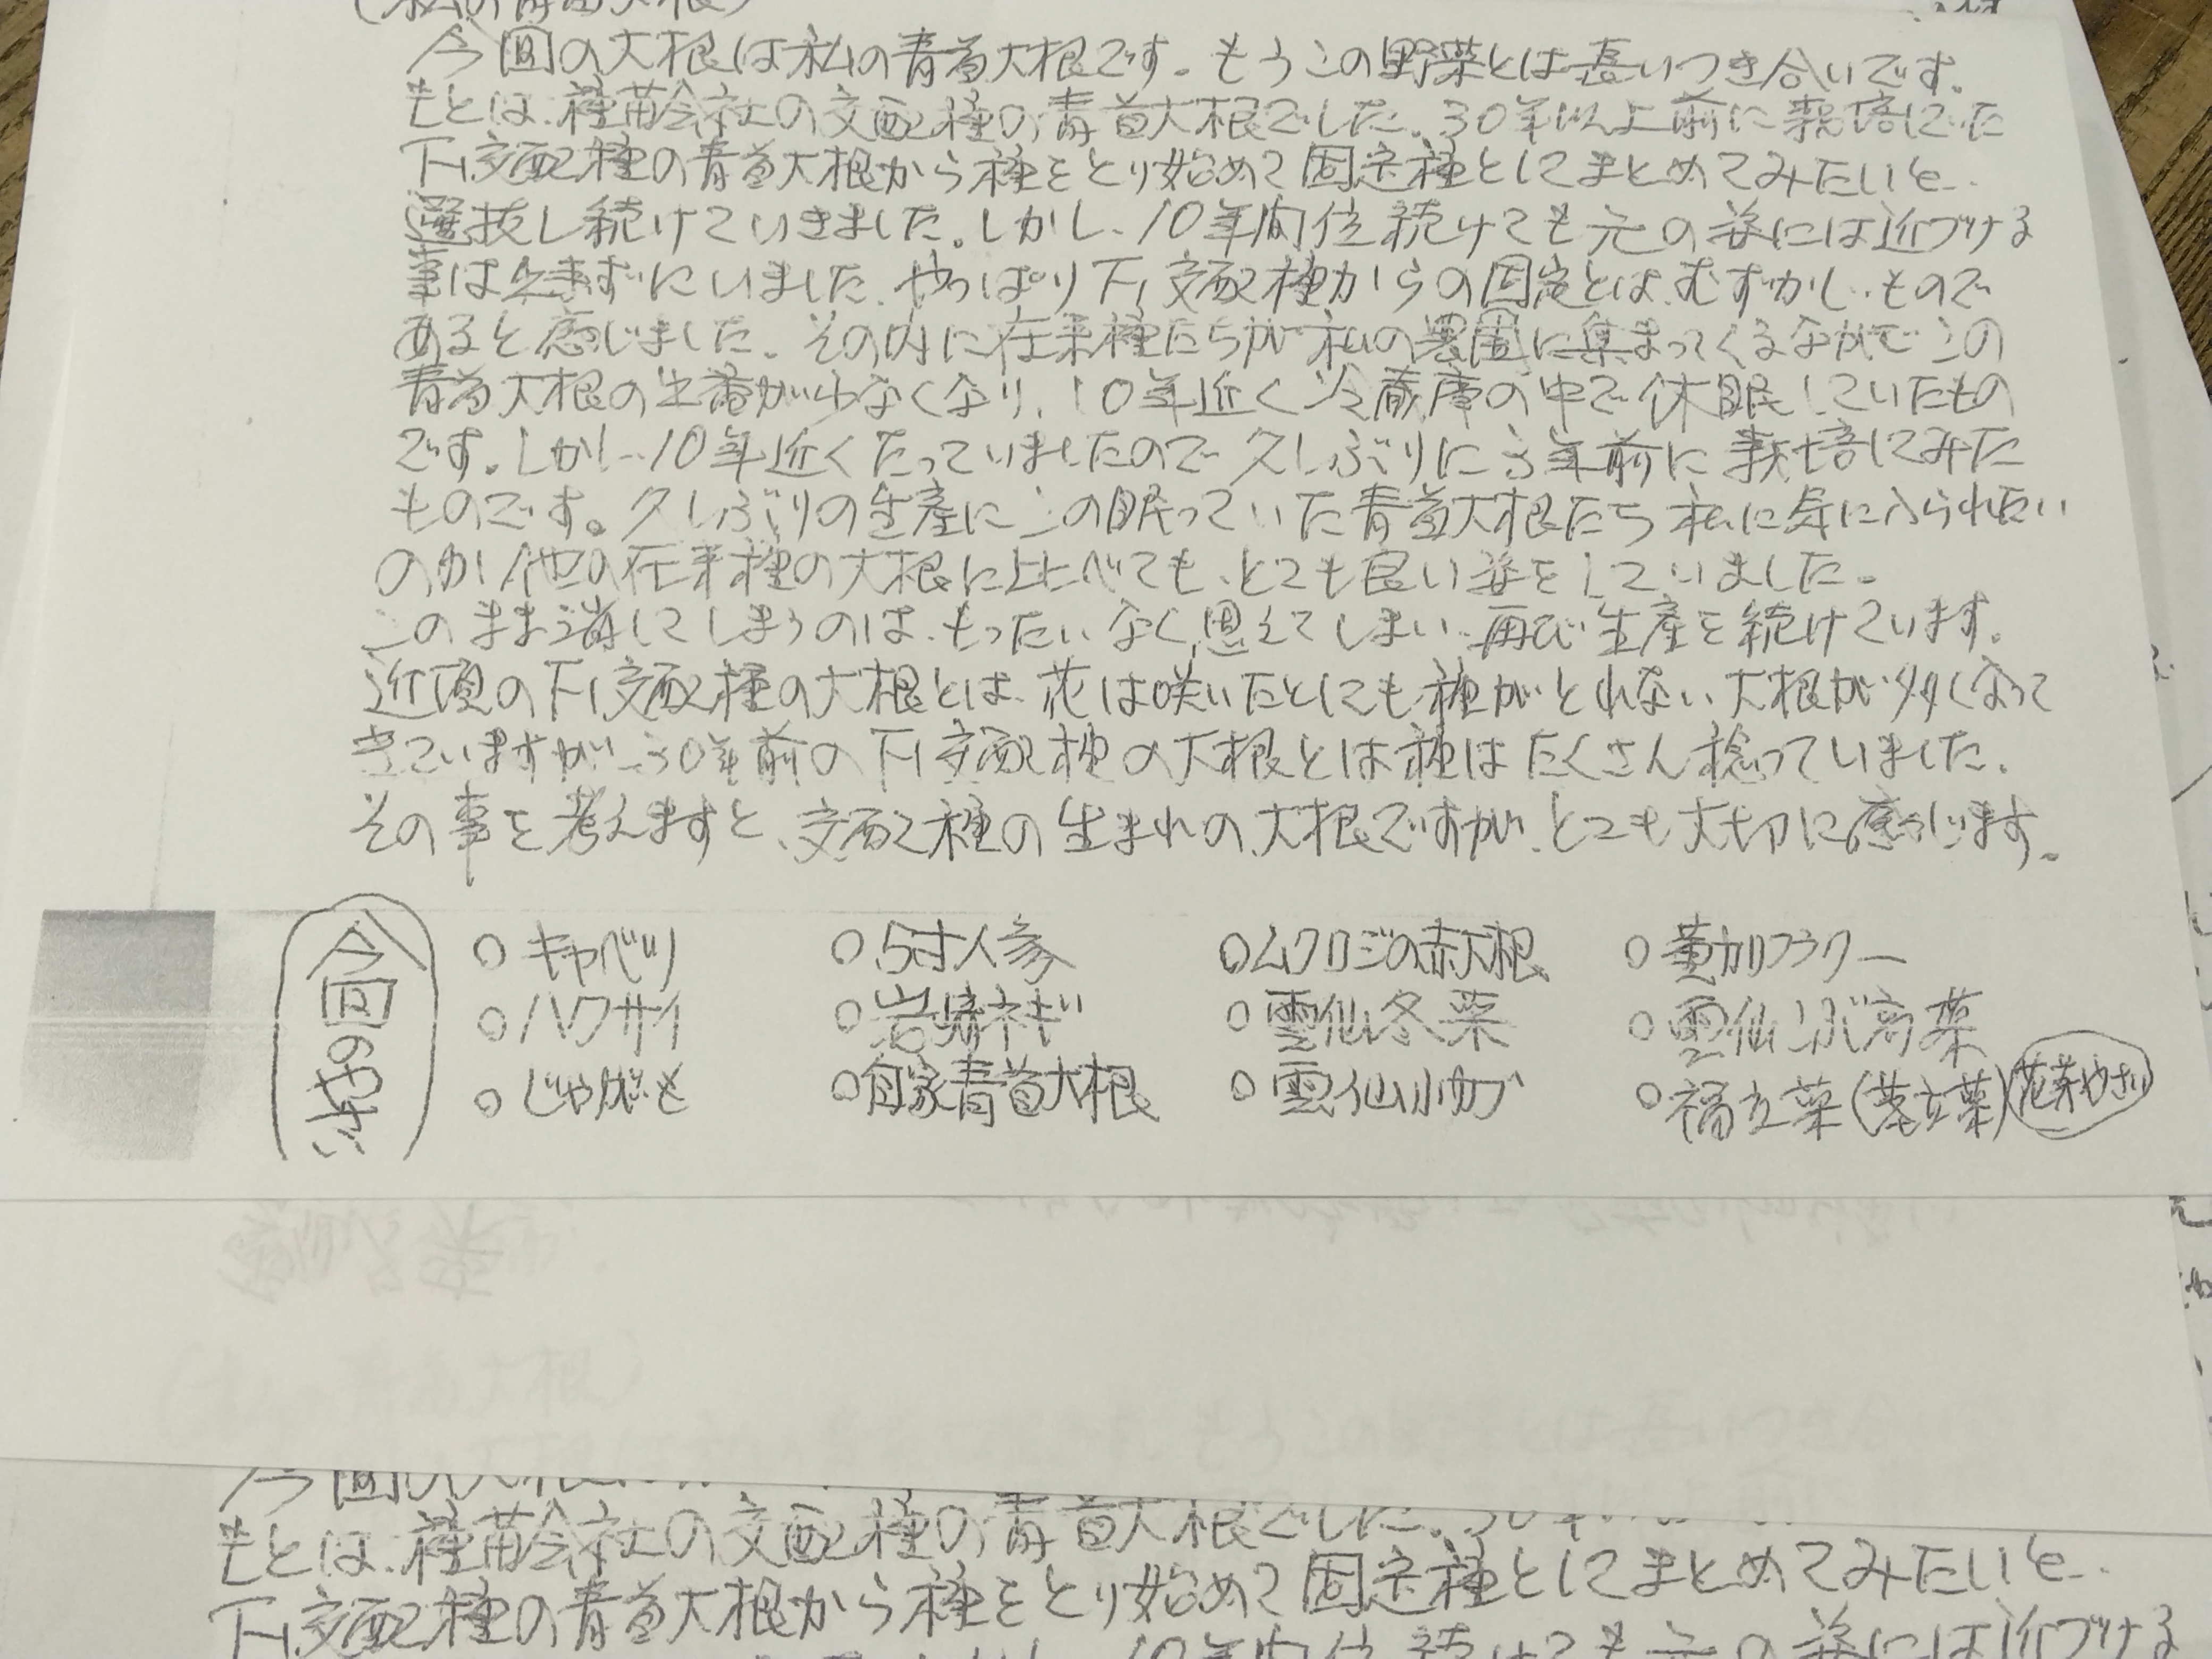 (私の青首大根)
今回の大根は私の青首大根です。もうこの野菜とは長いつき合いです。
もとは、種苗会社の交配種の青首大根でした。30年以上前に栽培していた
F1交配種の青首大根から種をとり始めて固定種としてまとめてみたいと、
選抜し続けていきました。しかし、10年間位続けても元の姿には近づける
事は出来ずにいました。やっぱりF1交配種からの固定とは、むずかしいもので
あると感じました。その内に在来種たちが私の農園に集まってくるなかでこの
青首大根の出番が少なくなり、10年近く冷蔵庫の中で休眠していたもの
です。しかし、10年近くたっていましたので久しぶりに3年前に栽培してみた
ものです。久しぶりの生産にこの眠っていた青首大根たち私に気に入られたい
のか、他の在来種の大根に比べても、とても良い姿をしていました。
このまま消してしまうのは、もったいなく思えてしまい、再び生産を続けています。
近頃のF1交配種の大根とは、花は咲いたとしても種がとれない大根が多くなって
きていますが、30年前のF1交配種の大根とは種はたくさん稔っていました。
その事を考えますと、交配種の生まれの大根ですが、とても大切に感じます。
今回のやさい
○キャベツ ○5寸人参 ○ムクロジの赤大根 ○黄カリフラワー
○ハクサイ ○岩崎ネギ ○雲仙冬菜 ○雲仙こぶ高菜
○じゃがいも ○自家青首大根 ○雲仙小カブ ○福立菜(茎立菜) 花芽やさい
今回の大根
もとは、種苗会社の交配種の青首大根でした。30年
F1交配種の青首大根から種をとり始めて固定種としてまとめてみたいと、
10年間位続けても元の姿には近づける